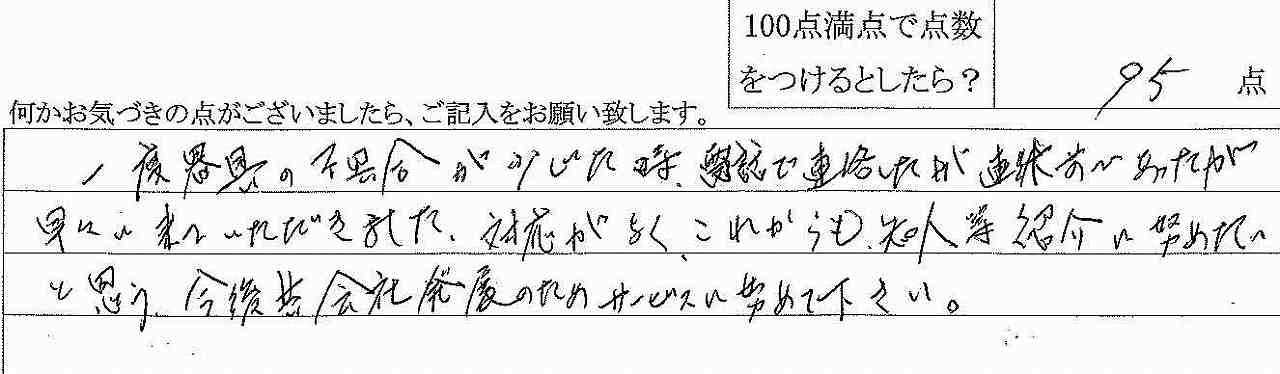 100点満点で点数
をつけるとしたら？
95 点
何かお気づきの点がございましたら、ご記入をお願い致します。
一度器具の不具合が生じた時、電話で連絡したが連休前であったが
早くに来ていただきました、対応が良く、これからも、知人等紹介に努めたい
と思う、今後共会社発展のためサービスに努めて下さい。